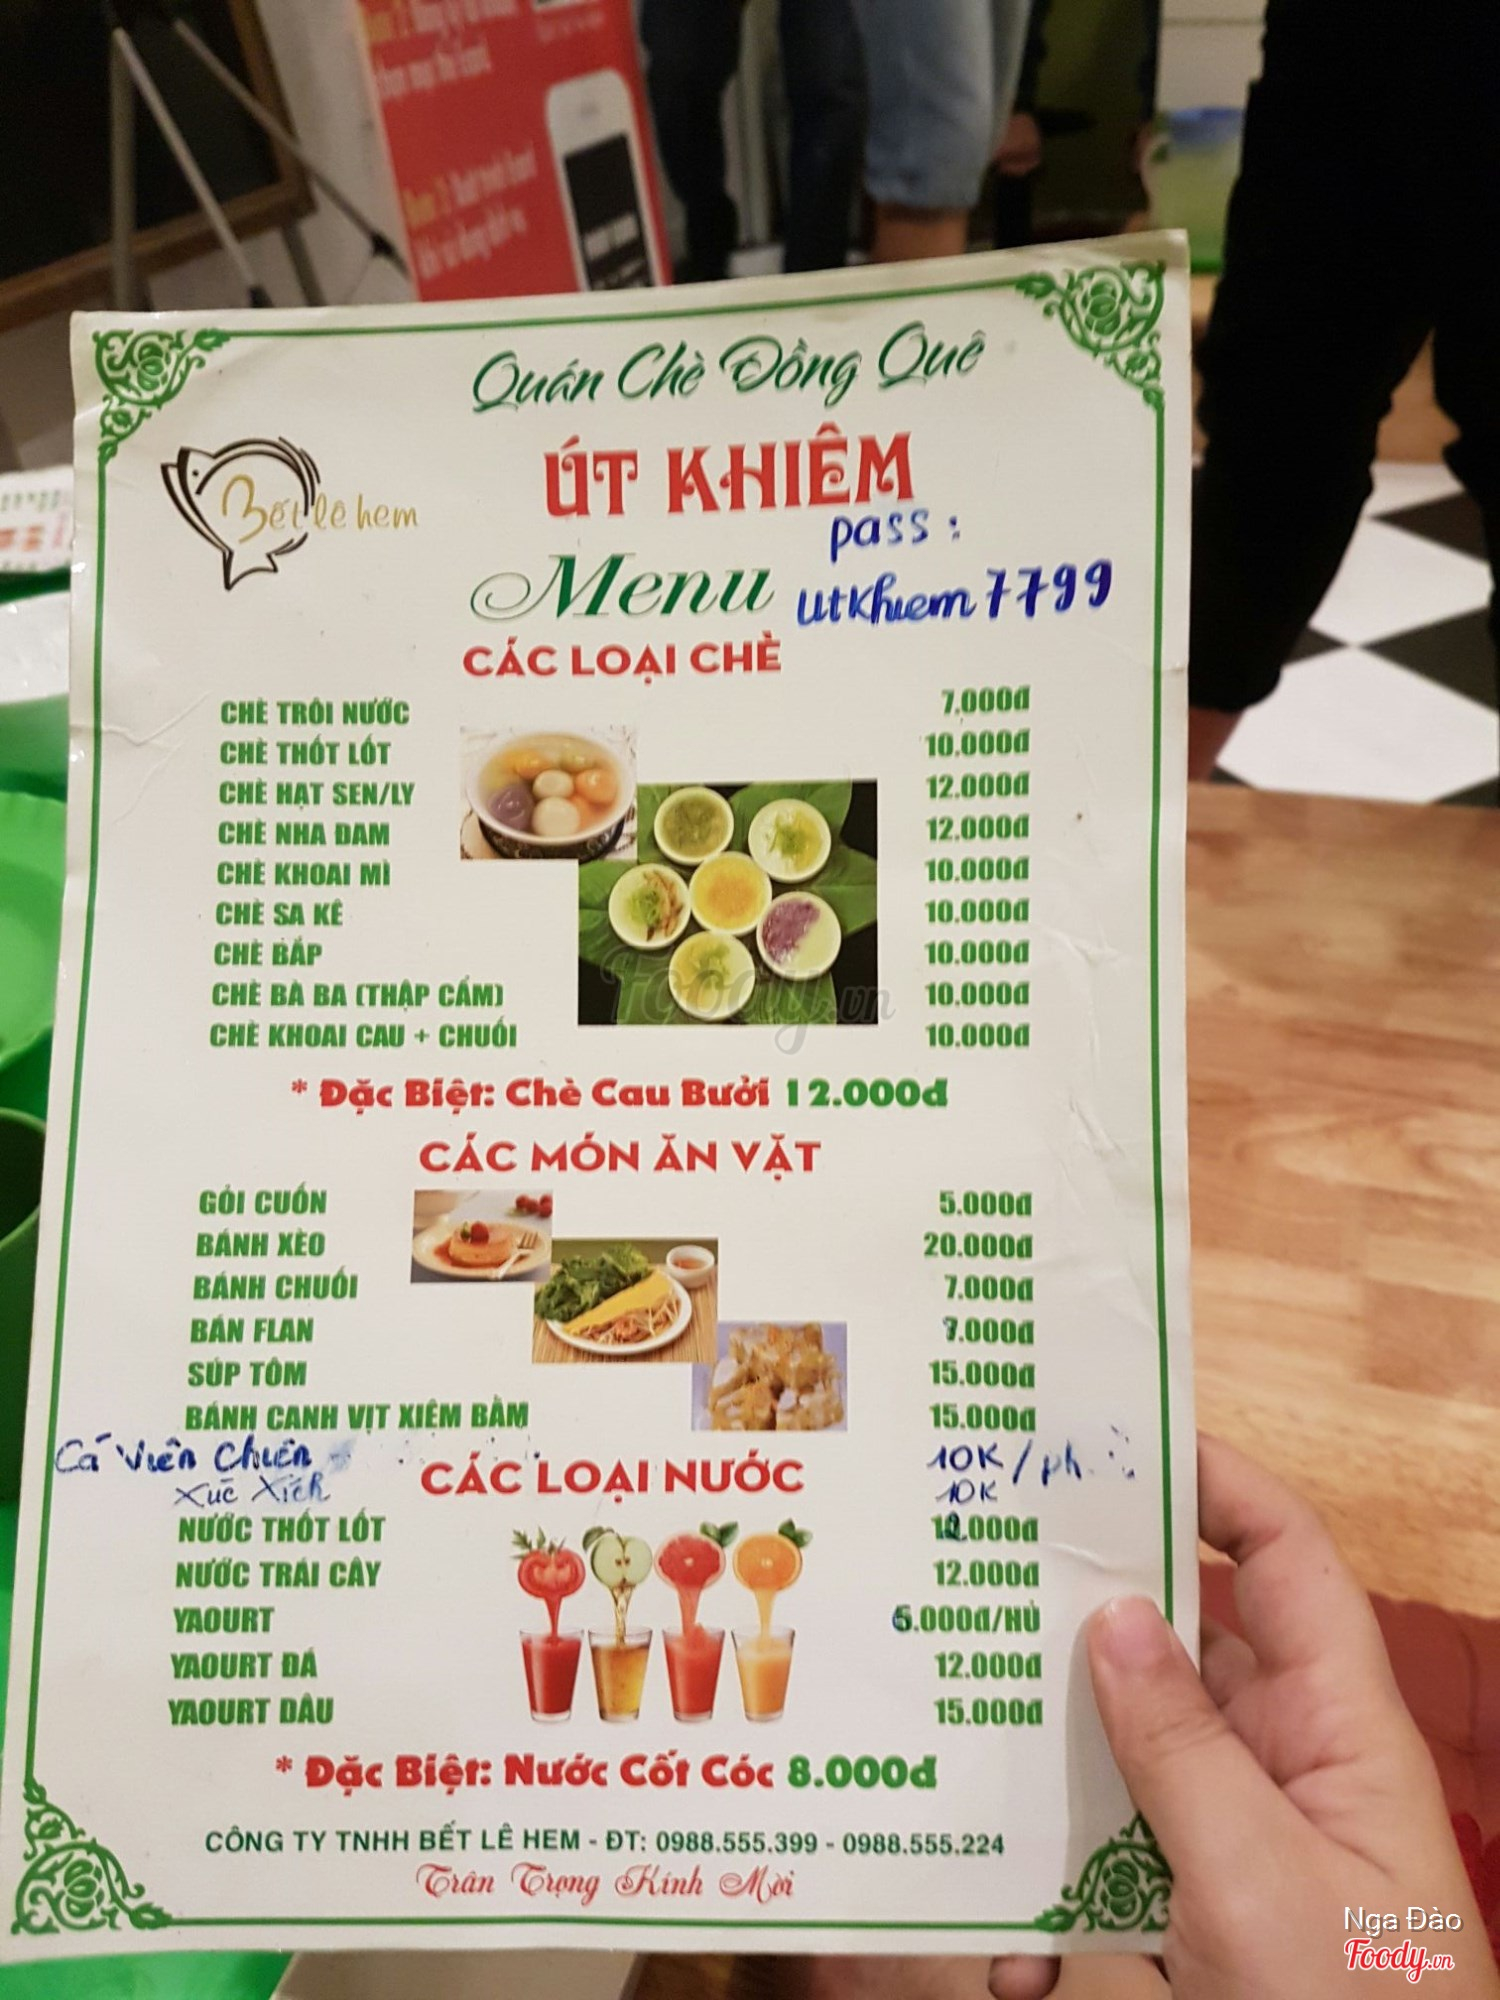 Quán Chè Đồng Quê
Bết lê hem
ÚT KHIÊM
pass:
Menu
utkhiem7799
CÁC LOẠI CHÈ
CHÈ TRÔI NƯỚC 7.000đ
CHÈ THỐT LỐT 10.000đ
CHÈ HẠT SEN/LY 12.000đ
CHÈ NHA ĐAM 12.000đ
CHÈ KHOAI MÌ 10.000đ
CHÈ SA KÊ 10.000đ
CHÈ BẮP 10.000đ
CHÈ BÀ BA (THẬP CẨM) 10.000đ
CHÈ KHOAI CAU + CHUỐI 10.000đ
* Đặc Biệt: Chè Cau Bưởi 12.000đ
CÁC MÓN ĂN VẶT
GỎI CUỐN 5.000đ
BÁNH XÈO 20.000đ
BÁNH CHUỐI 7.000đ
BÁN FLAN 7.000đ
SÚP TÔM 15.000đ
BÁNH CANH VỊT XIÊM BẰM 15.000đ
Cá viên chiên 10K/ph
xúc xích 10K
CÁC LOẠI NƯỚC
NƯỚC THỐT LỐT 12.000đ
NƯỚC TRÁI CÂY 12.000đ
YAOURT 6.000đ/HỦ
YAOURT ĐÁ 12.000đ
YAOURT DÂU 15.000đ
* Đặc Biệt: Nước Cốt Cóc 8.000đ
CÔNG TY TNHH BẾT LÊ HEM - ĐT: 0988.555.399 - 0988.555.224
Trân Trọng Kính Mời
Foody.vn
Nga Đào
Foody.vn